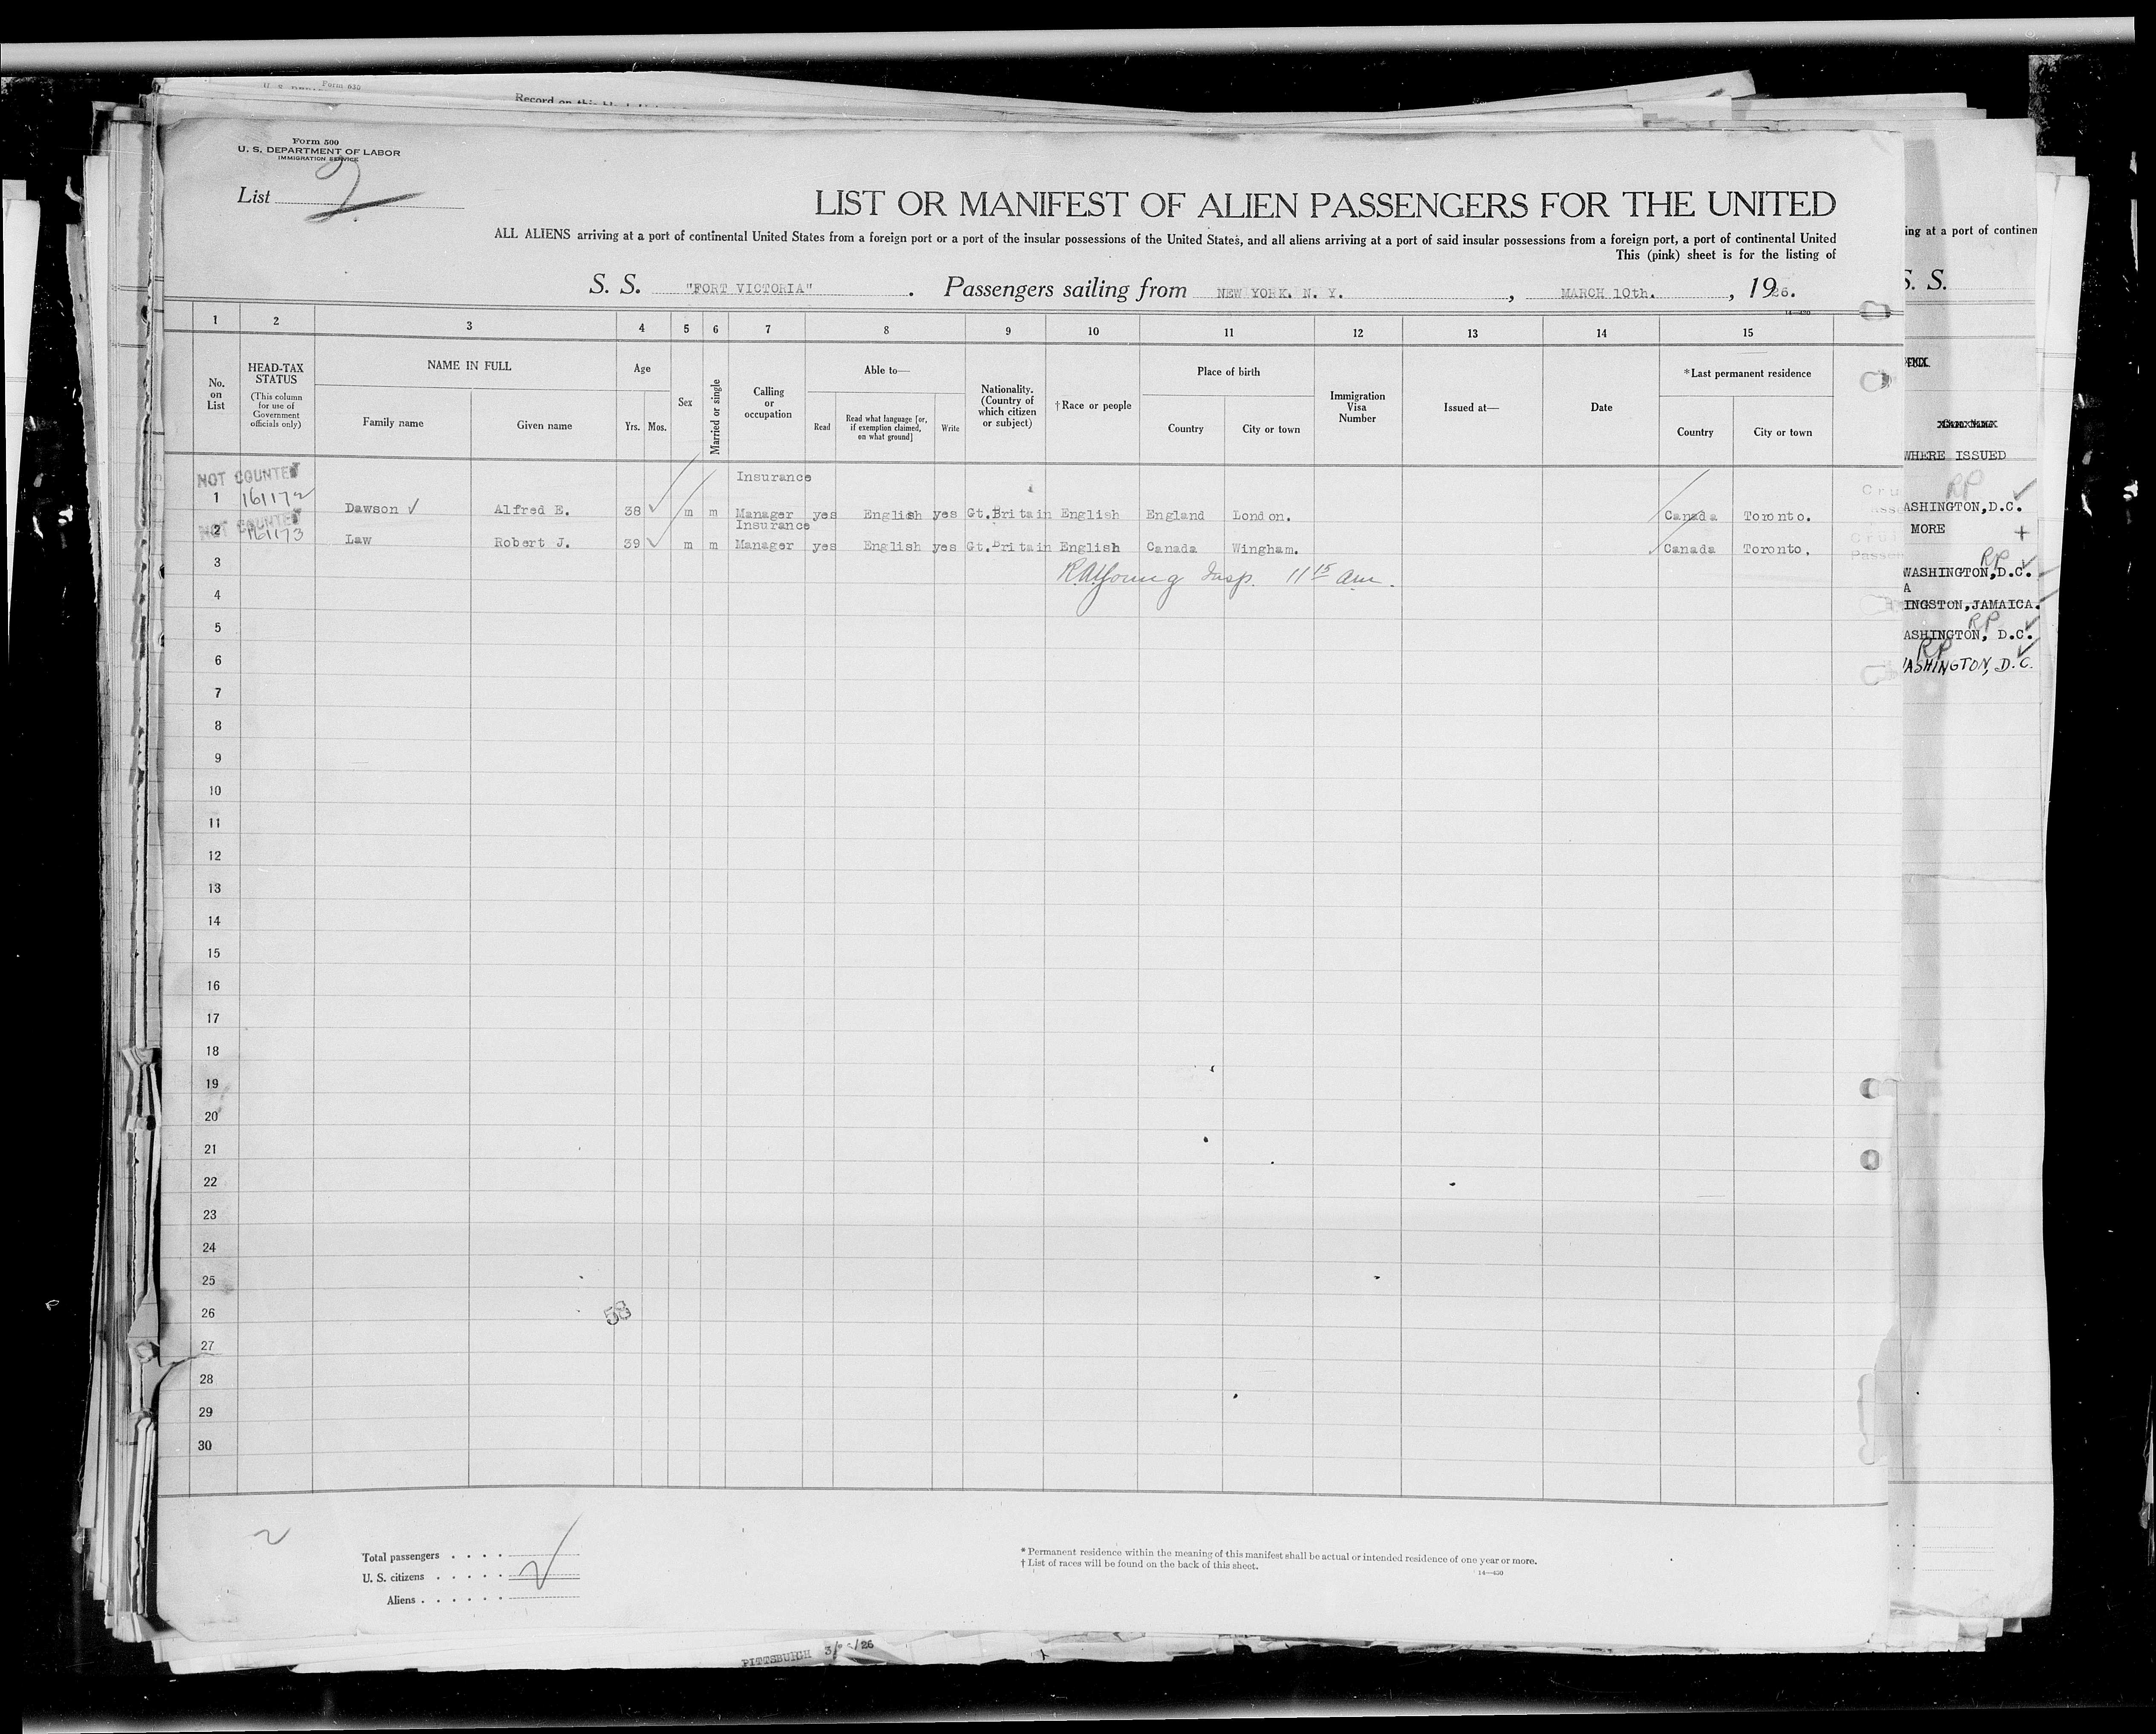 Form 630
Record on this
Form 500
U. S. DEPARTMENT OF LABOR
IMMIGRATION SERVICE
List 2
LIST OR MANIFEST OF ALIEN PASSENGERS FOR THE UNITED
ALL ALIENS arriving at a port of continental United States from a foreign port or a port of the insular possessions of the United States, and all aliens arriving at a port of said insular possessions from a foreign port, a port of continental United
This (pink) sheet is for the listing of
S. S. "FORT VICTORIA" . Passengers sailing from NEW YORK. N. Y. , MARCH 10th. , 1926.
14—420
1 2 3 4 5 6 7 8 9 10 11 12 13 14 15
No. on List
HEAD-TAX STATUS
(This column for use of Government officials only)
NAME IN FULL
Family name
Given name
Age
Yrs. Mos.
Sex
Married or single
Calling or occupation
Able to—
Read
Read what language [or, if exemption claimed, on what ground]
Write
Nationality. (Country of which citizen or subject)
†Race or people
Place of birth
Country
City or town
Immigration Visa Number
Issued at—
Date
*Last permanent residence
Country
City or town
NOT COUNTED
Insurance
1 161172 Dawson ✓ Alfred E. 38 ✓ m m Manager yes English yes Gt.Britain English England London. Canada Toronto.
NOT COUNTED
Insurance
2 161173 Law Robert J. 39 ✓ m m Manager yes English yes Gt.Britain English Canada Wingham. Canada Toronto.
3 R.A.Young Insp. 11 15 am.
4
5
6
7
8
9
10
11
12
13
14
15
16
17
18
19
20
21
22
23
24
25
26
58
27
28
29
30
2
Total passengers . . . .
U. S. citizens . . . . .
Aliens . . . . . .
* Permanent residence within the meaning of this manifest shall be actual or intended residence of one year or more.
† List of races will be found on the back of this sheet.
14—420
ing at a port of continen
S. S.
WHERE ISSUED
RP ✓
ASHINGTON,D.C.
MORE +
RP ✓
WASHINGTON,D.C.
A
INGSTON,JAMAICA.
RP ✓
ASHINGTON, D.C.
RP ✓
ASHINGTON, D.C.
PITTSBURGH